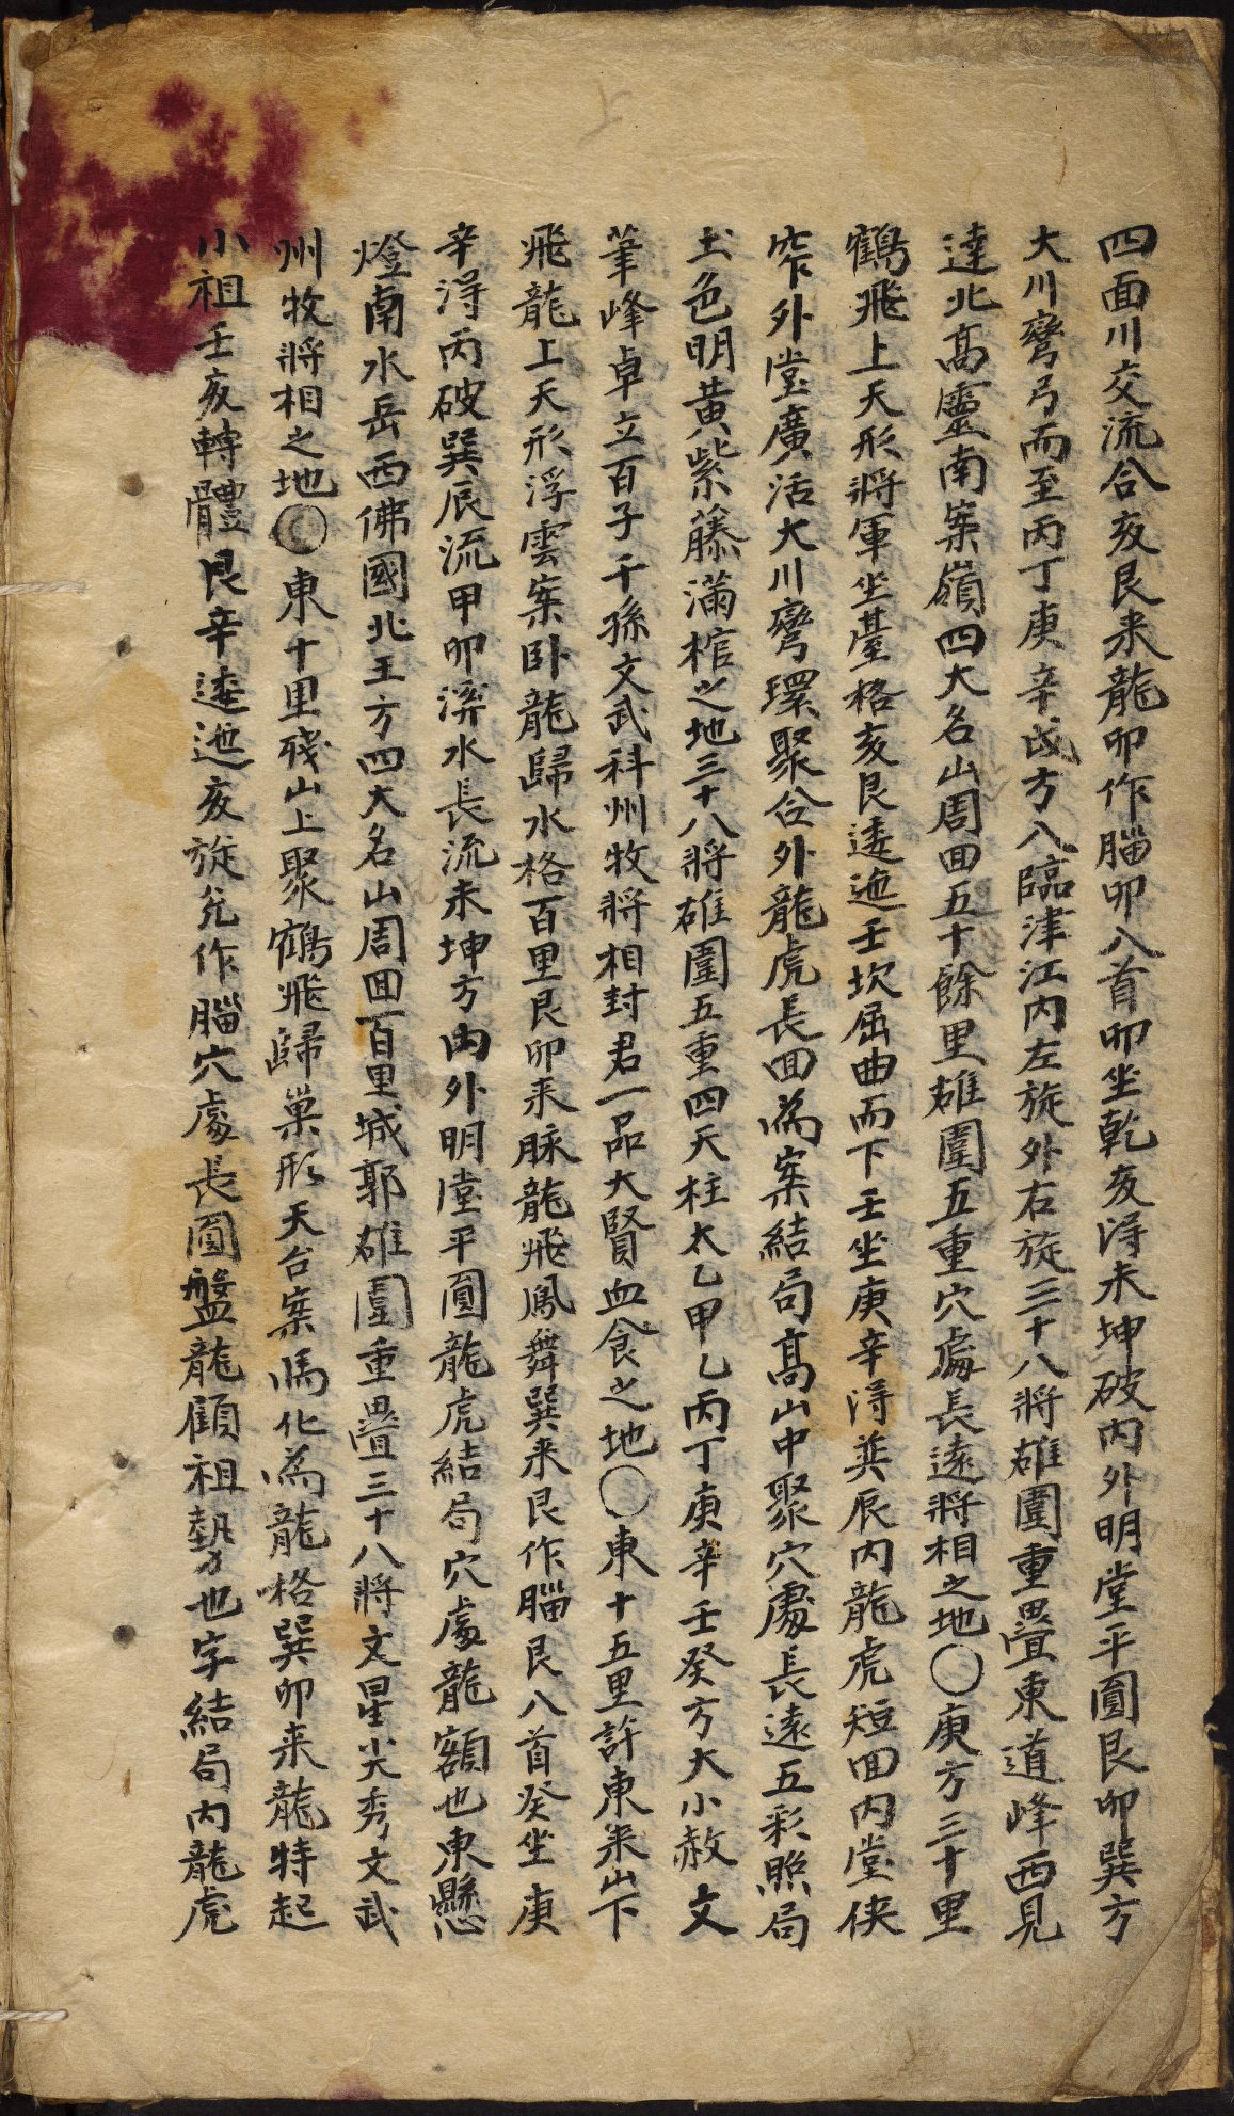 四面川交流合亥艮来龍卯作腦卯入首卯坐乾亥淂未坤破内外明堂平圓艮卯巽方
大川彎弓而至丙丁庚辛戌方入臨津江内左旋外右旋三十八將雄圍重疊東道峰西見
達北髙靈南案嶺四大名山周囬五十餘里雄圍五重穴處長遠將相之地〇庚方三十里
鶴飛上天形將軍坐臺格亥艮逶迤壬坎屈曲而下壬坐庚辛淂巽辰内龍虎短囬内堂俠
窄外堂廣活大川彎環聚合外龍虎長囬為案結局髙山中聚穴處長遠五彩照局
土色明黄紫藤滿棺之地三十八將雄圍五重四天柱太乙甲乙丙丁庚辛壬癸方大小赦文
筆峰卓立百子千孫文武科州牧將相封君一品大賢血食之地〇東十五里許東来山下
飛龍上天形浮雲案卧龍歸水格百里艮卯来脉龍飛鳳舞巽来艮作腦艮入首癸坐庚
辛淂丙破巽辰流甲卯溪水長流未坤方内外明堂平圓龍虎結局穴處龍額也東懸
燈南水岳西佛國北王方四大名山周囬百里城郭雄圍重疊三十八將文星尖秀文武
州牧將相之地〇東十里殘山上聚鶴飛歸巢形天台案馬化為龍格巽卯来龍特起
小祖壬亥轉體艮辛逶迤亥旋兌作腦穴處長圓盤龍顧祖勢也字結局内龍虎